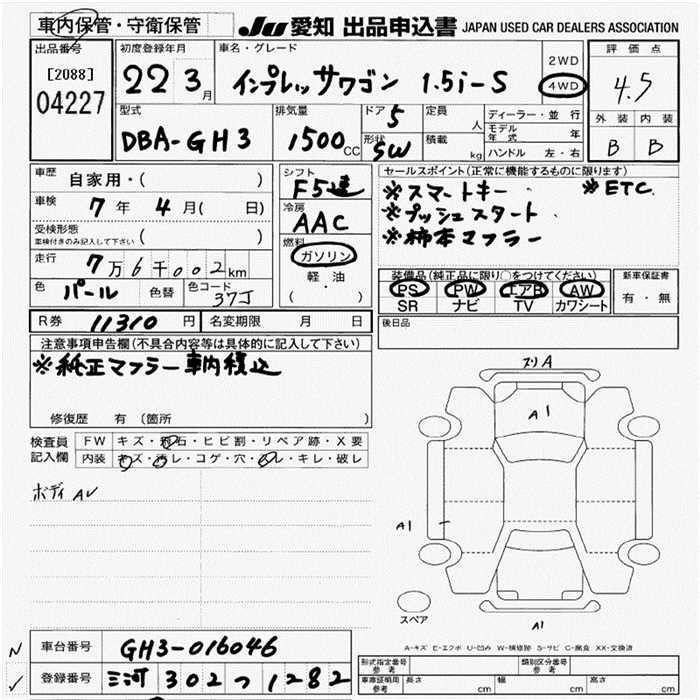 車内保管・守衛保管
JU 愛知 出品申込書 JAPAN USED CAR DEALERS ASSOCIATION
出品番号
[2088]
04227
初度登録年月
22 3月
車名・グレード
インプレッサワゴン 1.5i-S
2WD
4WD
評価点
4.5
外装 内装
B B
型式
DBA-GH3
排気量
1500CC
ドア 5
形状 SW
定員 人
積載 kg
ディーラー・並行
モデル年式 年
ハンドル 左・右
車歴 自家用・( )
車検 7年 4月( 日)
受検形態
車検付きのみ記入して下さい ( )
走行 7万6千002km
色 パール 色替 色コード 37J
シフト
F5速
冷房
AAC
燃料
ガソリン
軽・油
( ・ )
セールスポイント(正常に機能するものに限ります)
※スマートキー ※ETC
※プッシュスタート
※柿本マフラー
装備品(純正品に限り○をつけてください)
PS PW エアB AW
SR ナビ TV カワシート
新車保証書
有・無
R券 11310円 名変期限 月 日
後日品
注意事項申告欄(不具合内容等は具体的に記入して下さい)
※純正マフラー車内積込
修復歴 有 (箇所 )
検査員記入欄
FW キズ・飛石・ヒビ割・リペア跡・X要
内装 キズ・汚レ・コゲ・穴・スレ・キレ・破レ
ボディ AU
スリA
A1
A1
A1
スペア
A-キズ E-エクボ U-凹み W-補修跡 S-サビ C-腐食 XX-交換済
N
✓
車台番号 GH3-016046
登録番号 三河 302 つ 1282
形式指定番号 参考
類別区分番号 参考
車庫証明用 参考
長さ cm 幅 cm 高さ cm